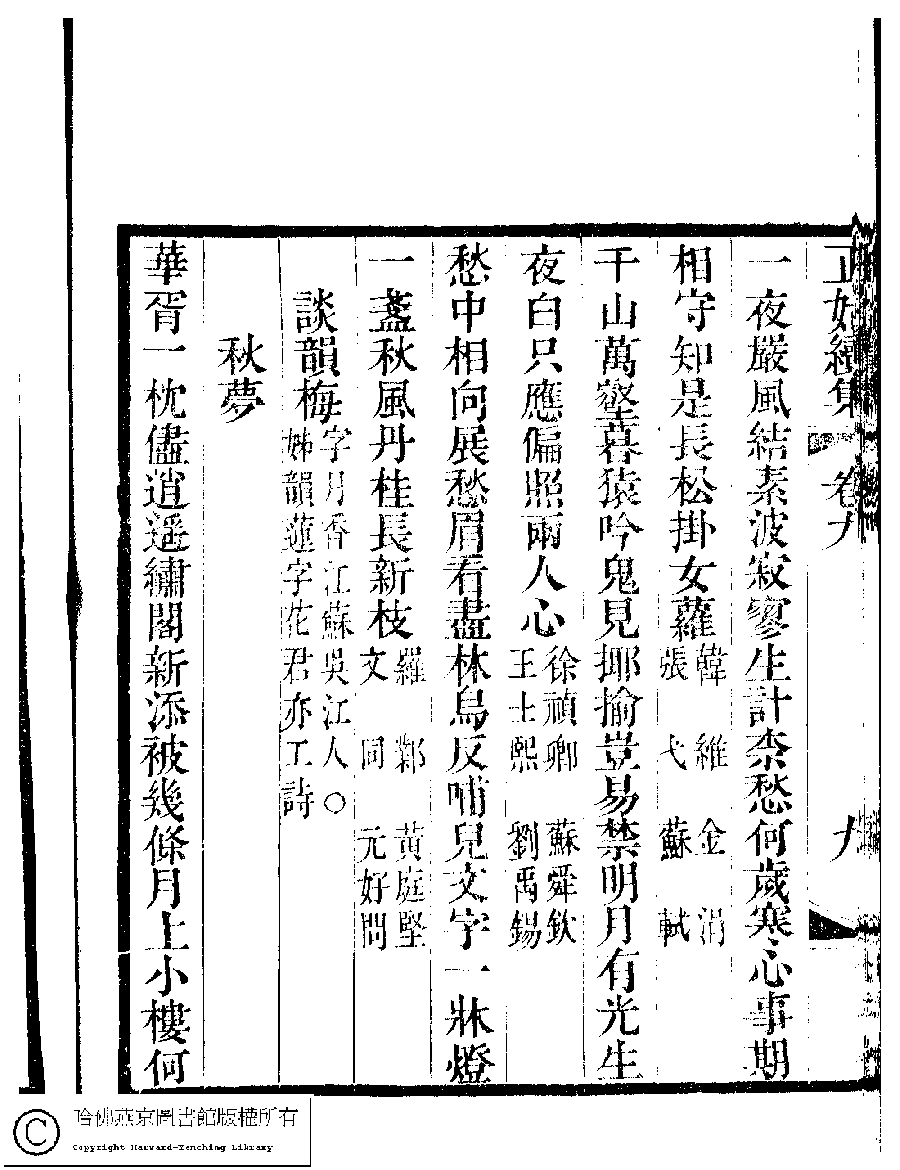 正始續集 卷九 九
一夜嚴風結素波寂寥生計柰愁何歲寒心事期
相守知是長松掛女蘿
韓維 金涓
張弋 蘇軾
千山萬壑暮猿吟鬼見揶揄豈易禁明月有光生
夜白只應偏照兩人心
徐禎卿 蘇舜欽
王士熙 劉禹錫
愁中相向展愁眉看盡林烏反哺兒文字一牀燈
一盞秋風丹桂長新枝
羅鄴 黃庭堅
文同 元好問
談韻梅
字月香江蘇吳江人○
姊韻蓮字花君亦工詩
秋夢
華胥一枕儘逍遙繡閣新添被幾條月上小樓何
哈佛燕京圖書館版權所有
Copyright Harvard-Yenching Library